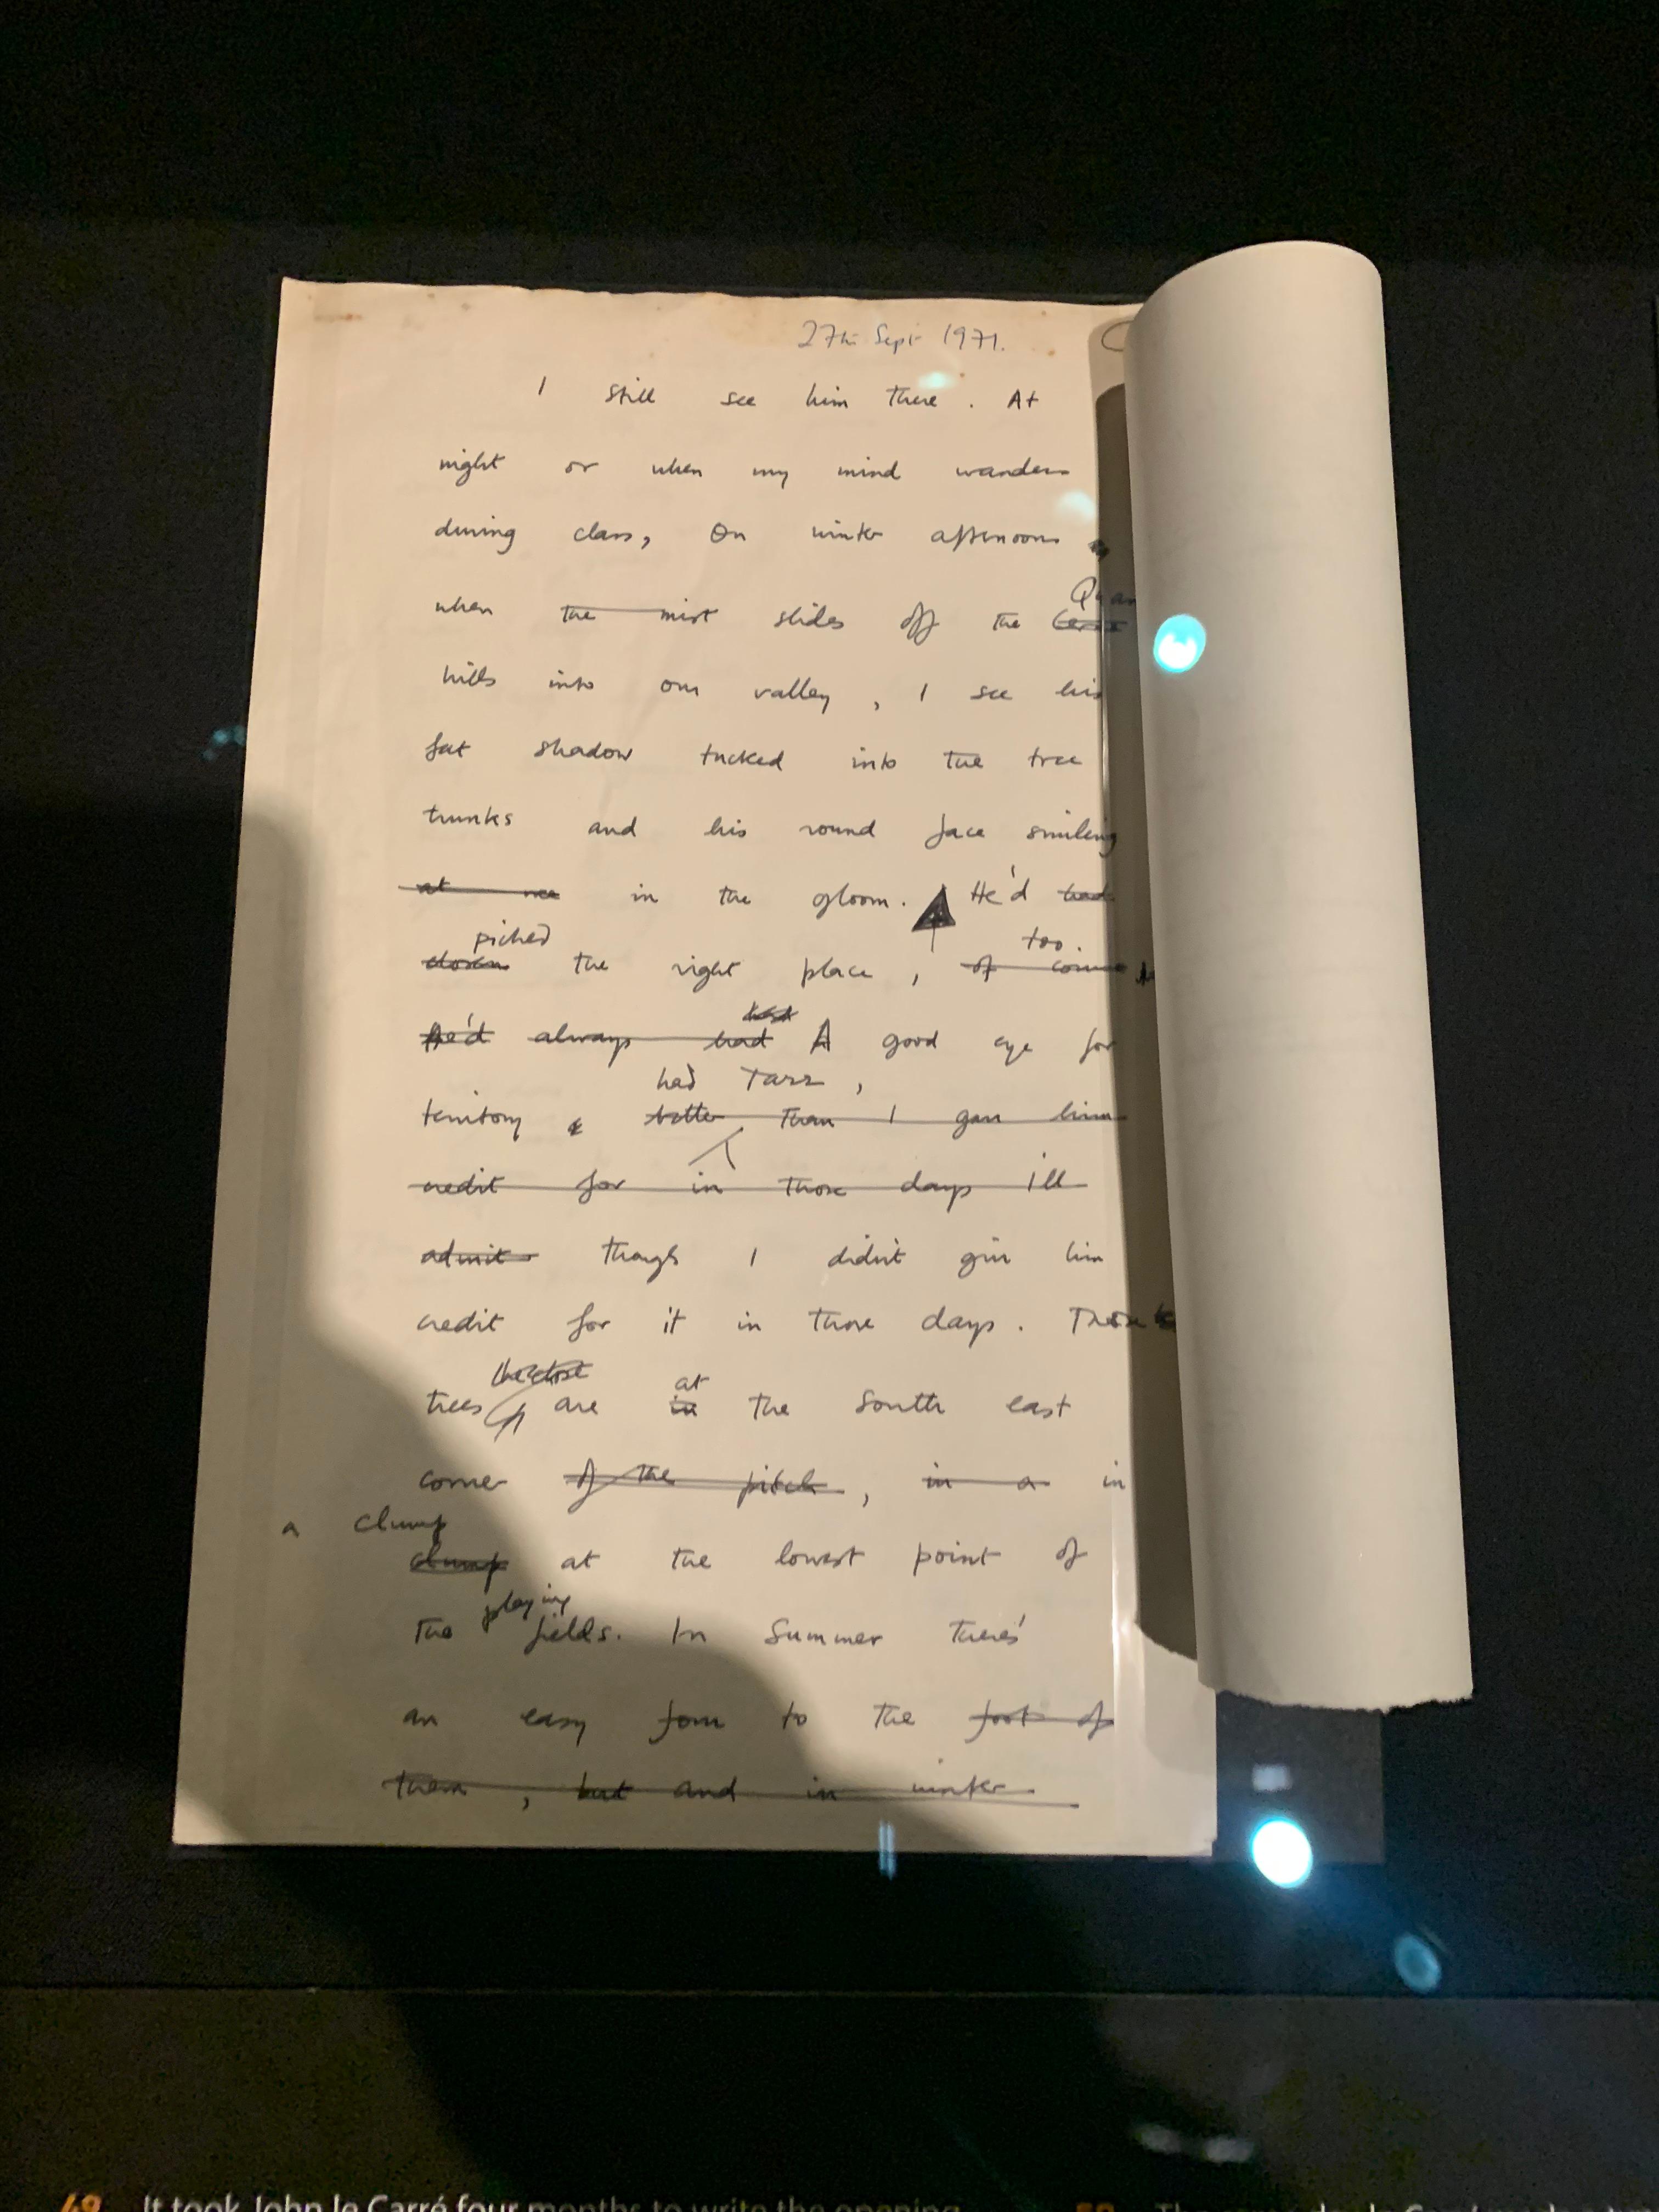 27th Sept 1971.
I still see him there. At
night or when my mind wanders
during class, On winter afternoons
when the mist slides off the
Quan
hills into our valley, I see his
fat shadow tucked into the tree
trunks and his round face smiling
at me in the gloom. He'd had
picked too.
chosen the right place, of course
had
he'd always had A good eye for
had Tarr,
territory better than I gave him
credit for in those days I'll
admit though I didn't give him
credit for it in those days. Those
at
trees are in the South east
corner of the pitch, in a in
a clump
clump at the lowest point of
playing
the fields. In Summer there's
an easy form to the foot of
them, but and in winter
49 It took John le Carré four months to write the opening
50